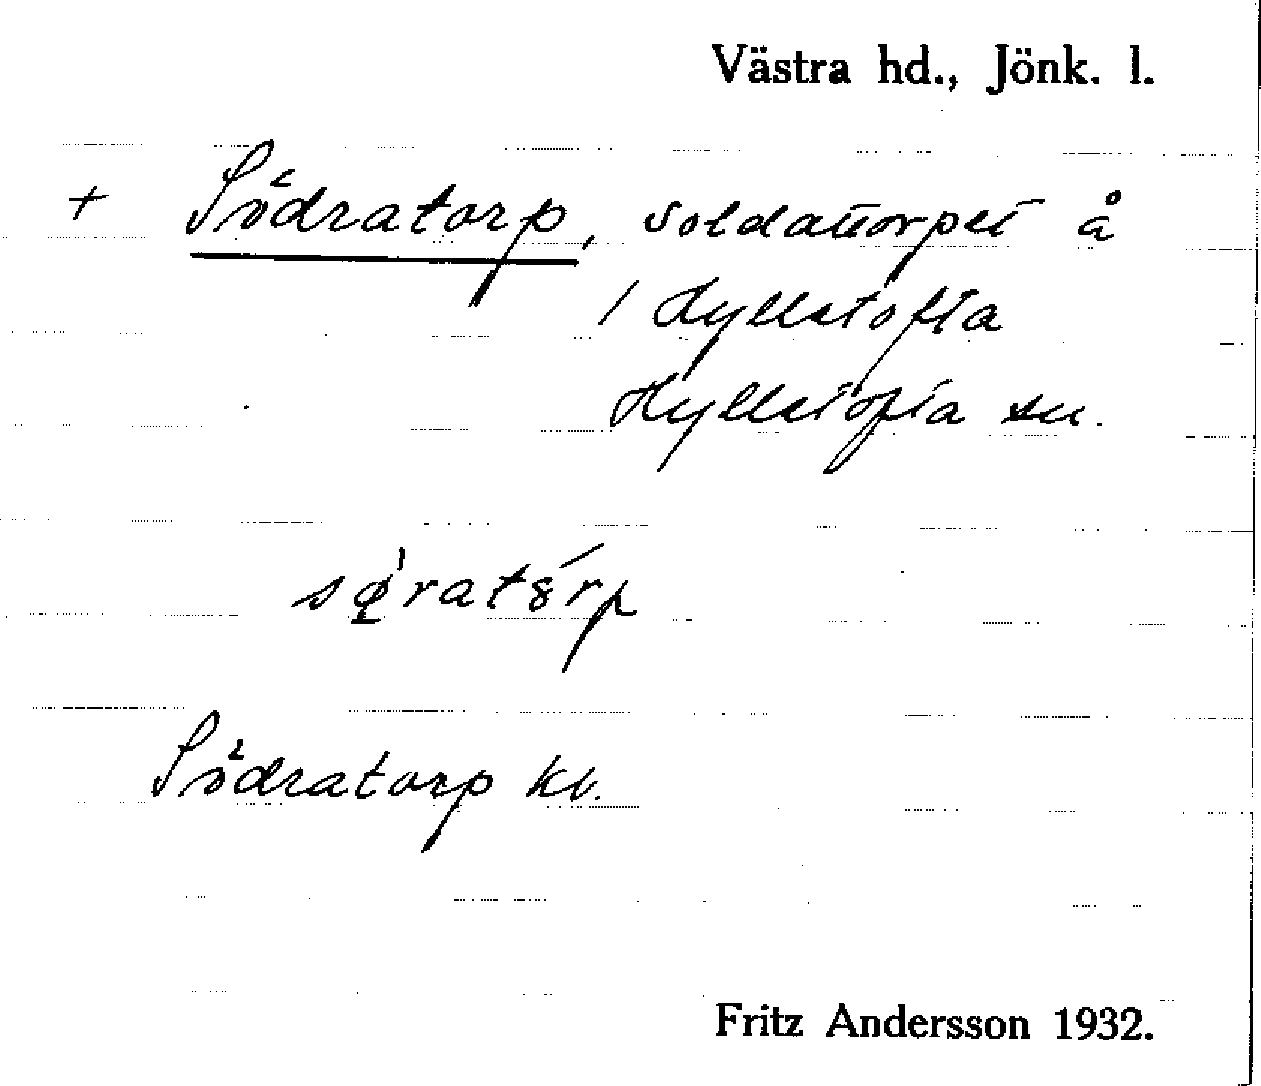 Västra hd., Jönk. l.
+ Södratorp, soldattorpet å
/ Hylletofta
Hylletofta sn.
sø̨̍ratȣ́rp
Södratorp kv.
Fritz Andersson 1932.